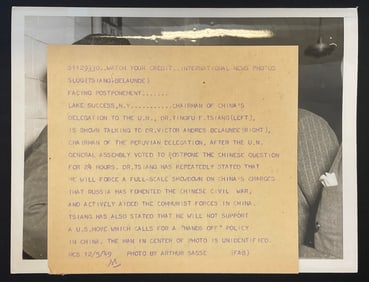 S1129330..WATCH YOUR CREDIT..INTERNATIONAL NEWS PHOTOS
SLUG(TSIANG-BELAUNDE)
FACING POSTPONEMENT......
LAKE SUCCESS,N.Y..........CHAIRMAN OF CHINA'S
DELEGATION TO THE U.N., DR.TINGFU F.TSIANG(LEFT),
IS SHOWN TALKING TO DR.VICTOR ANDRES BELAUNDE(RIGHT),
CHAIRMAN OF THE PERUVIAN DELEGATION, AFTER THE U.N.
GENERAL ASSEMBLY VOTED TO POSTPONE THE CHINESE QUESTION
FOR 24 HOURS. DR.TSIANG HAS REPEATEDLY STATED THAT
HE WILL FORCE A FULL-SCALE SHOWDOWN ON CHINA'S CHARGES
THAT RUSSIA HAS FOMENTED THE CHINESE CIVIL WAR,
AND ACTIVELY AIDED THE COMMUNIST FORCES IN CHINA.
TSIANG HAS ALSO STATED THAT HE WILL NOT SUPPORT
A U.S.MOVE WHICH CALLS FOR A "HANDS OFF" POLICY
IN CHINA. THE MAN IN CENTER OF PHOTO IS UNIDENTIFIED.
12/5/49 PHOTO BY ARTHUR SASSE (FAB)